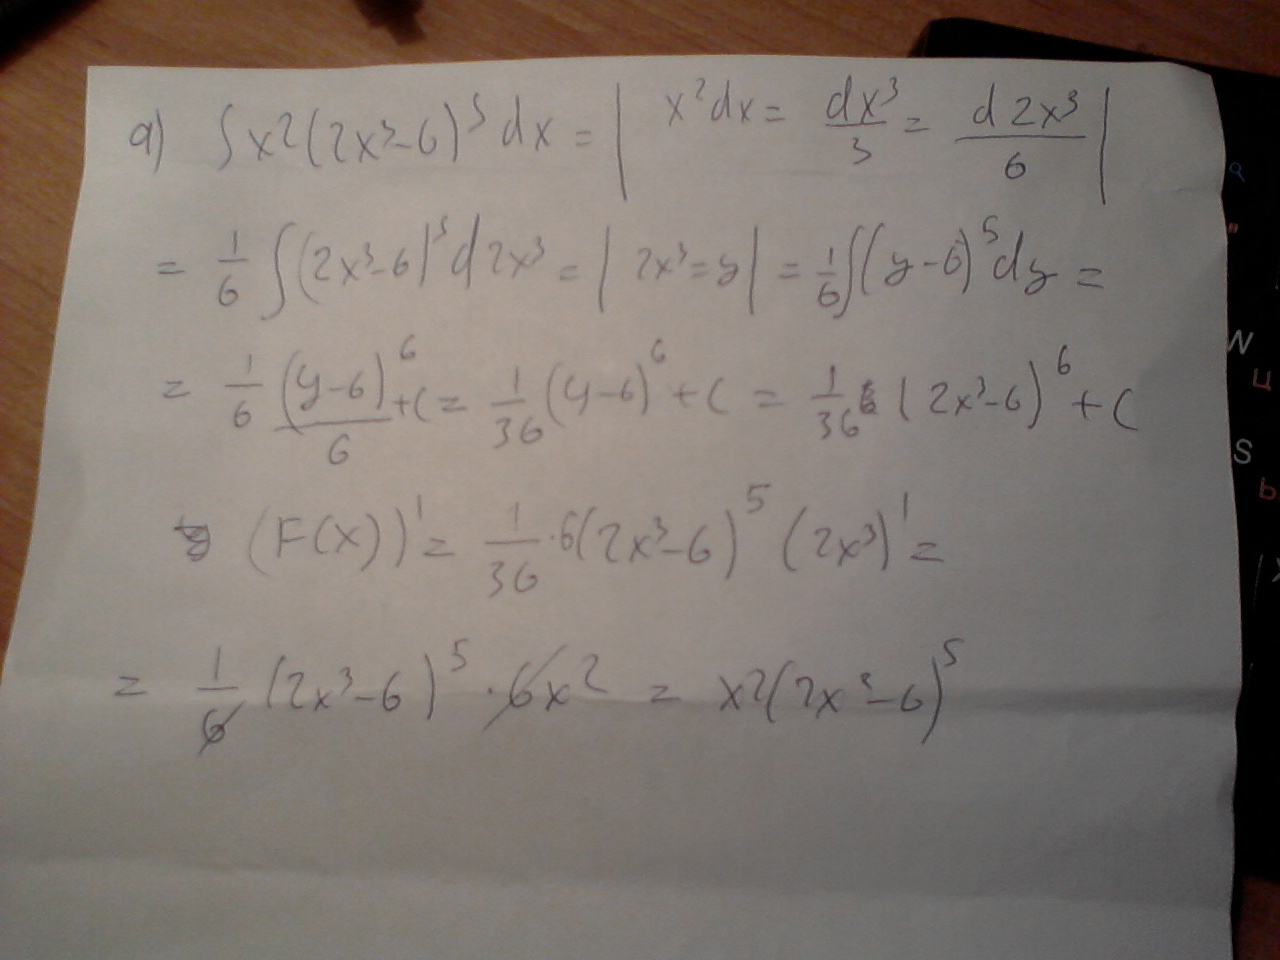 a) ∫x2(2x³-6)⁵dx = | x²dx = dx³/3 = d2x³/6 |
= 1/6 ∫(2x³-6)⁵d2x³ = | 2x³=y | = 1/6 ∫(y-6)⁵dy =
= 1/6 (y-6)⁶/6 + C = 1/36 (y-6)⁶ + C = 1/36 (2x³-6)⁶ + C
(F(x))' = 1/36 · 6(2x³-6)⁵ (2x³)' =
= 1/6 (2x³-6)⁵ · 6x² = x2(2x³-6)⁵
W
ц
S
ь